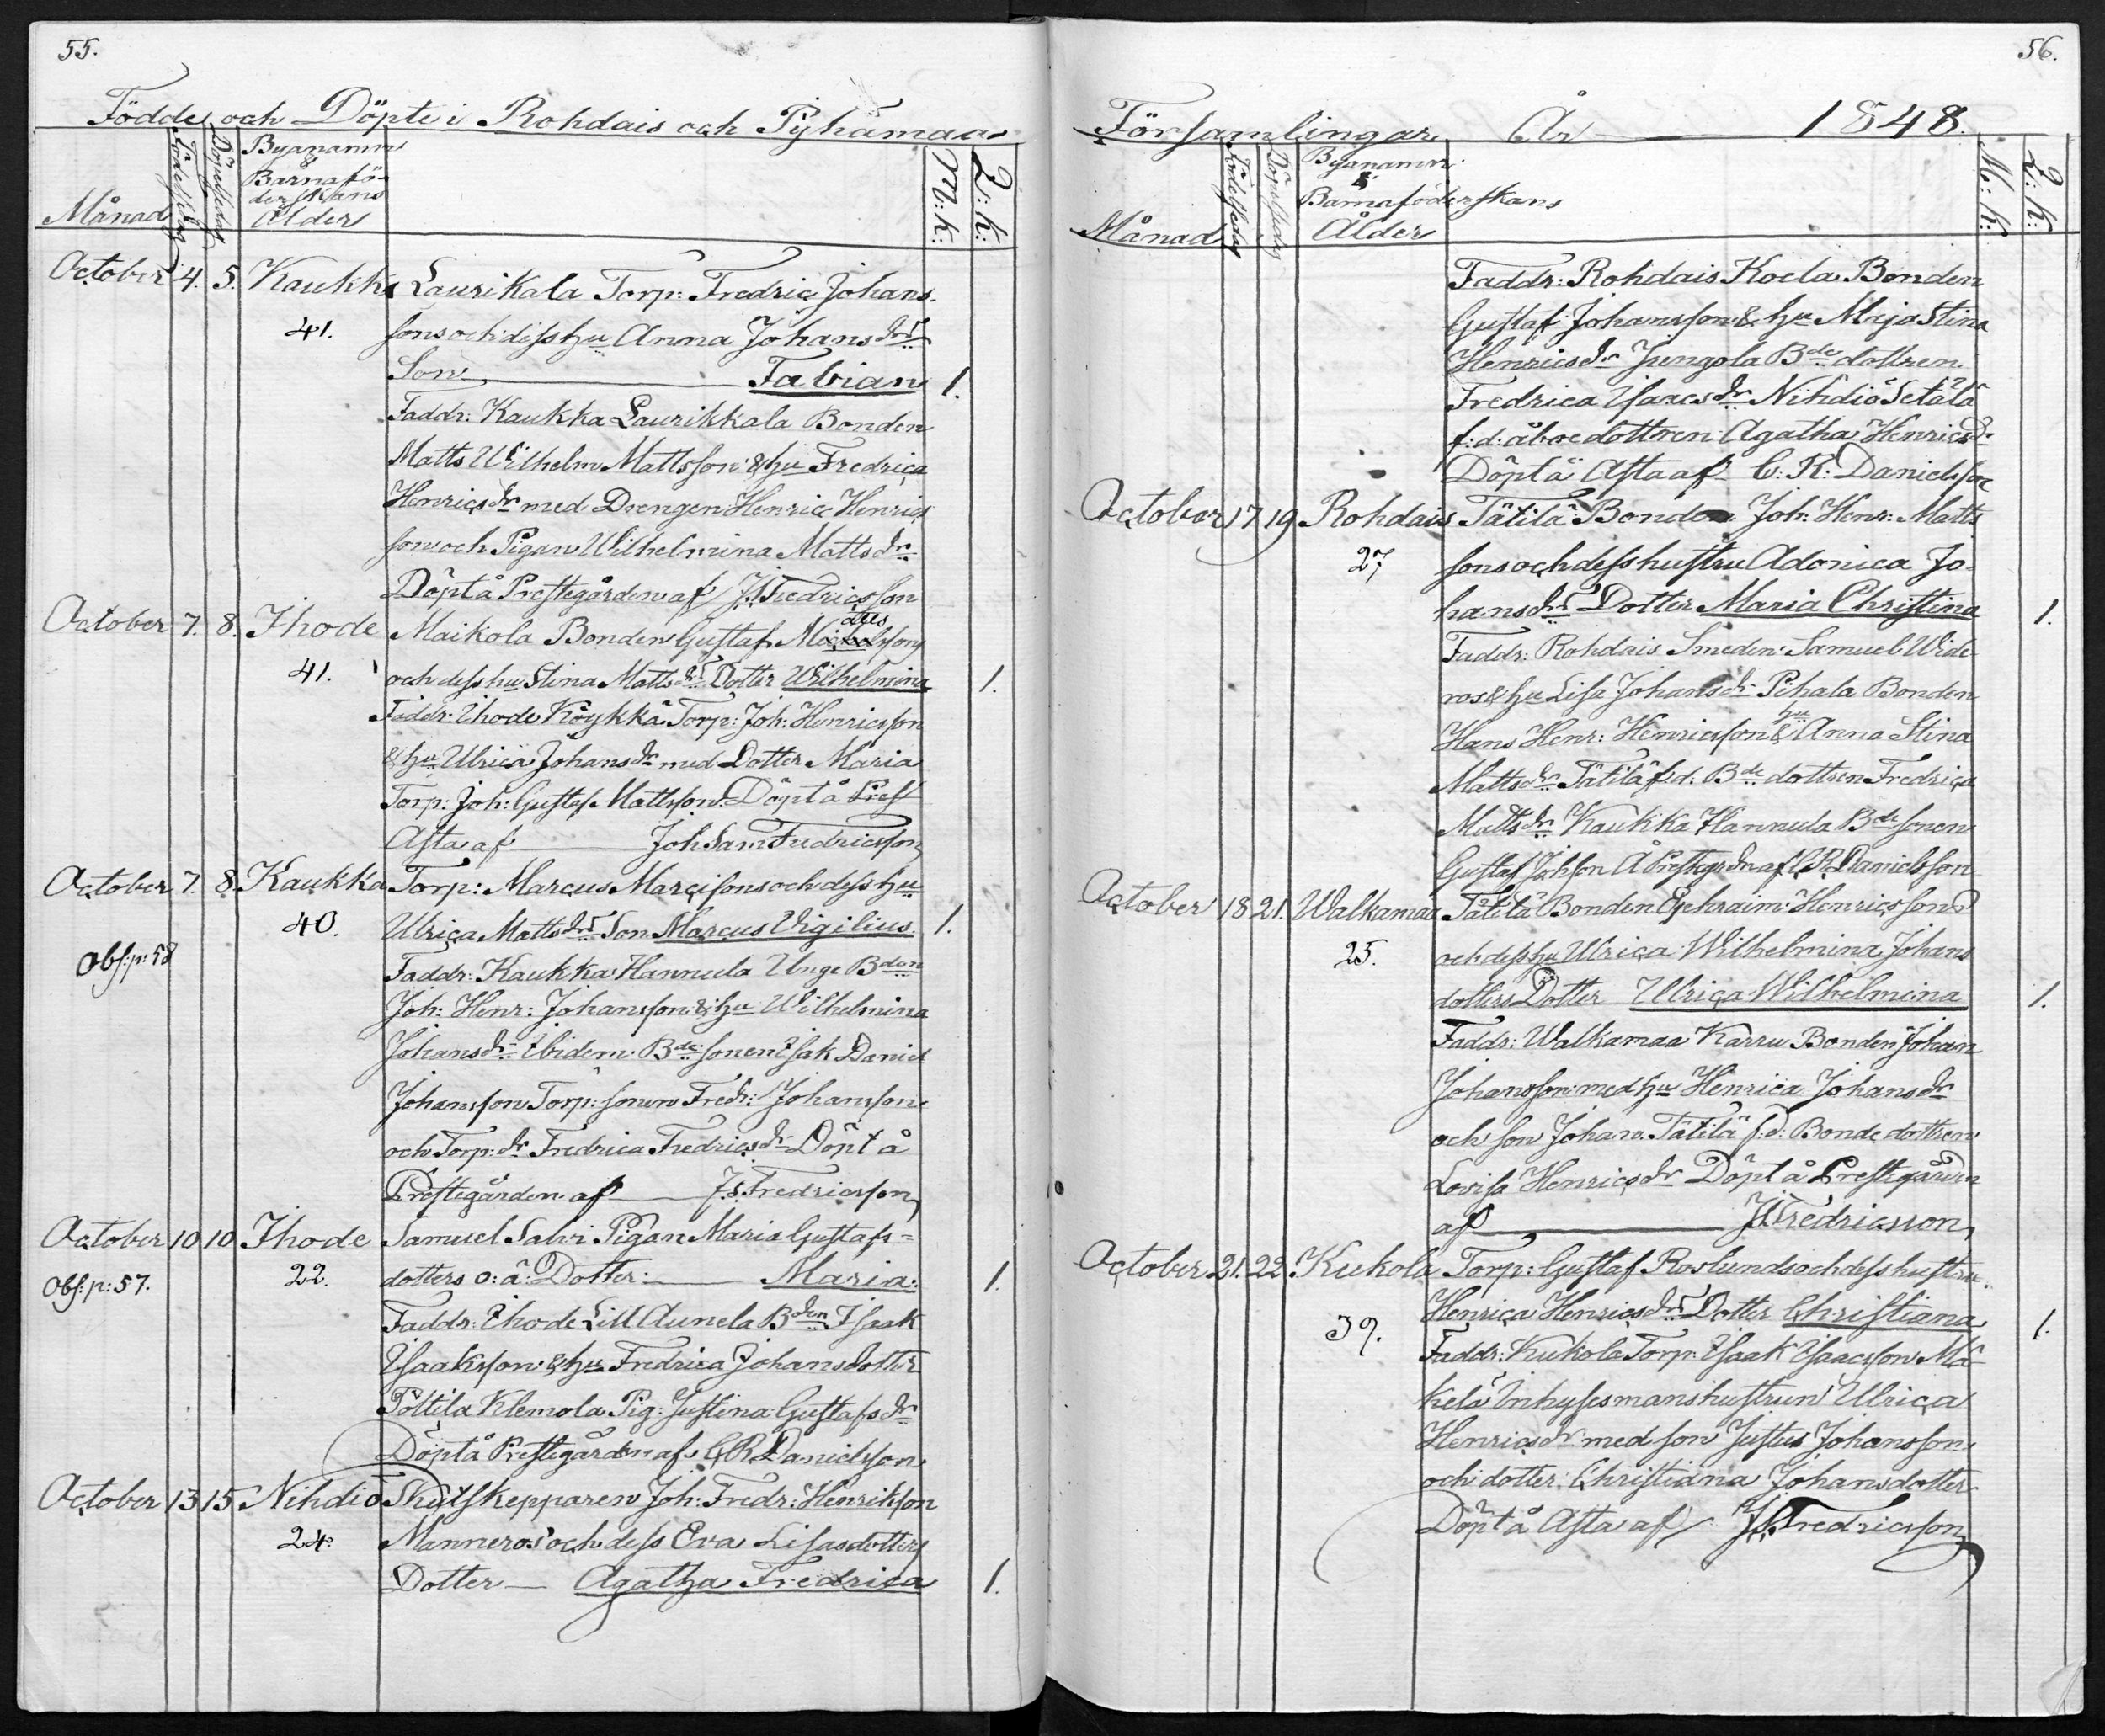 55.
Födde och Döpte i Rohdais och Pyhämaa
Månad Födelsedag Döpelsedag Byanamn & Barnaföderskans Ålder M:K: Q:K:
October 4. 5. Kaukka Laurikala Torp: Fredric Johans-
41. sons och dess hu Anna Johansdrs
Son Fabian 1.
Faddr: Kaukka Laurikkala Bonden
Matts Wilhelm Mattsson & hu Fredrica
Henricsdr med Drengen Henric Henrics
son och Pigan Wilhelmina Mattsdr
Döpt å Prestegården af J.S. Fredricsson
October 7. 8. Ihode Maikola Bonden Gustaf Matssons
41. och dess hu Stina Mattsdrs Dotter Wilhelmina 1.
Faddr: Ihode Köykkä Torp: Joh: Henricsson
& hu Ulrica Johansdr med Dotter Maria
Torp: Joh: Gustaf Mattsson. Döpt å Prest
Asta af Joh Sam Fredricsson
October 7. 8. Kaukka Torp: Marcus Marcisons och dess hu
40. Ulrica Mattsdrs Son Marcus Vigilius. 1.
Obs: p: 58 Faddr: Kaukka Hannula Unge Bden
Joh: Henr: Johansson & hu Wilhelmina
Johansdr Ibidem: Bde sonen Isak Daniel
Johansson Torp: sonen Fredr: Johansson
och Torp: dr Fredrica Fredricsdr Döpt å
Prestegården af J.S. Fredricsson
October 10 10 Ihode Samuel Salvi Pigan Maria Gustafs=
Obs: p: 57. 22. dotters o: ä: Dotter: Maria: 1.
Faddr: Ihode Lill Aunela Bden Isaak
Isaaksson & hu Fredrica Johansdotter
Pöltila Klemola Pig: Justina Gustafsdr
Döpt å Prestegården af C.R. Danielsson
October 13 15 Nihdiö Skutskepparen Joh: Fredr: Henrikson
24. Manneros och dess Eva Lisasdotters
Dotter Agatha Fredrica 1.
56.
Församlingar År 1848.
Månad Födelsedag Döpelsedag Byanamn & Barnaföderskans Ålder M:K: Q:K:
Faddr: Rohdais Koela Bonden
Gustaf Johansson & hu Maja Stina
Henricsdr Jungola Bde dottren
Fredrica Isaacsdr Nihdiö Setälä
f:d: åboedottren Agatha Henricsdr
Döpt å Asta af C: R: Danielsson
October 17 19 Rohdais Tätilä Bonden Joh: Henr: Matts
27 sons och dess hustru Adonica Jo-
hansdrs Dotter Maria Christina 1.
Faddr: Rohdais Smeden Samuel Wide
ros & hu Lisa Johansdr Pihala Bonden
Hans Henr: Henricsson & hu Anna Stina
Mattsdr Tätilä f.d. Bde dottren Fredrica
Mattsdr Kaukka Hannula Bde sonen
Gustaf Johsson Å Prestegrdn af C.R. Danielsson
October 18 21. Walkamaa Tätilä Bonden Ephraim Henricsons
25. och dess hu Ulrica Wilhelmina Johans
dotters Dotter Ulrica Wilhelmina 1.
Faddr: Walkamaa Karru Bonden Johan
Johansson med hu Henrica Johansdr
och son Johan. Tätilä f:d: Bondedottren
Lovisa Henricsdr Döpt å Prestegården
af J.S. Fredricsson
October 21. 22. Kukola Torp: Gustaf Roslunds och dess hustru
39. Henrica Henricsdrs Dotter Christiana 1.
Faddr: Kukola Torp: Isaak Isaacsson Mä-
kelä Inhysesmanshustrun Ulrica
Henricsdr med son Justus Johansson
och dotter Christiana Johansdotter
Döpt å Asta af J.S. Fredricsson